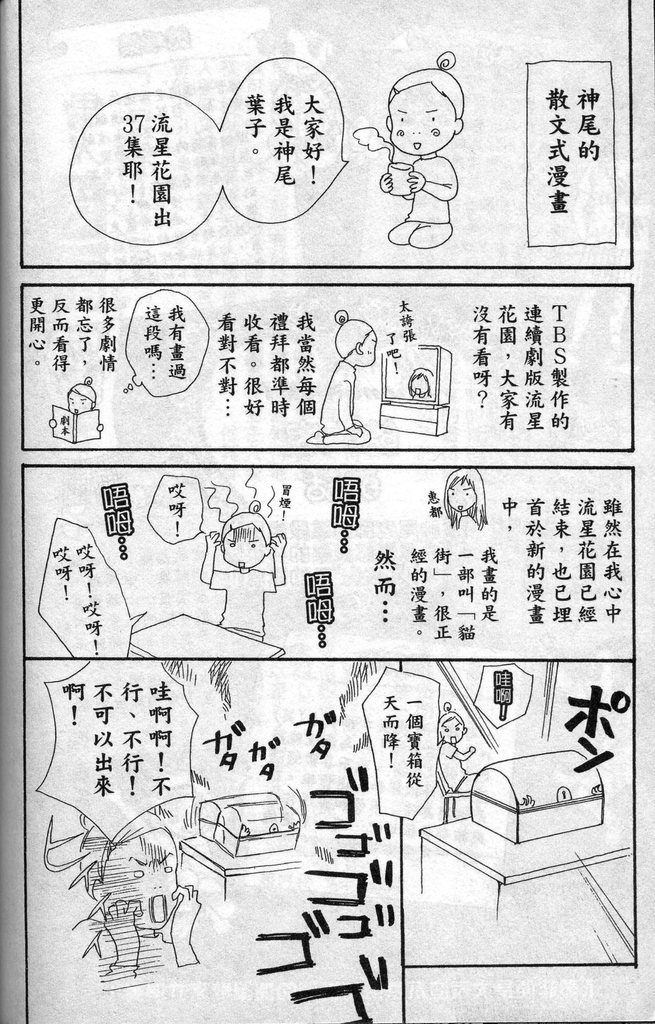 神尾的
散文式漫畫
大家好！
我是神尾
葉子。
流星花園出
37集耶！
TBS製作的
連續劇版流星
花園，大家有
沒有看呀？
太誇張
了吧！
我當然每個
禮拜都準時
收看。很好
看對不對…
我有畫過
這段嗎…
很多劇情
都忘了，
反而看得
更開心。
劇本
雖然在我心中
流星花園已經
結束，也已埋
首於新的漫畫
中，
惠都
我畫的是
一部叫「貓
街」，很正
經的漫畫。
然而…
唔姆…
唔姆…
冒煙！
哎呀！
唔姆…
哎呀！哎呀！
哎呀！
ポン
哇啊！
一個寶箱從
天而降！
ガタ
ガタ
ガタ
ゴゴゴゴゴゴゴ
哇啊啊！不
行、不行！
不可以出來
啊！